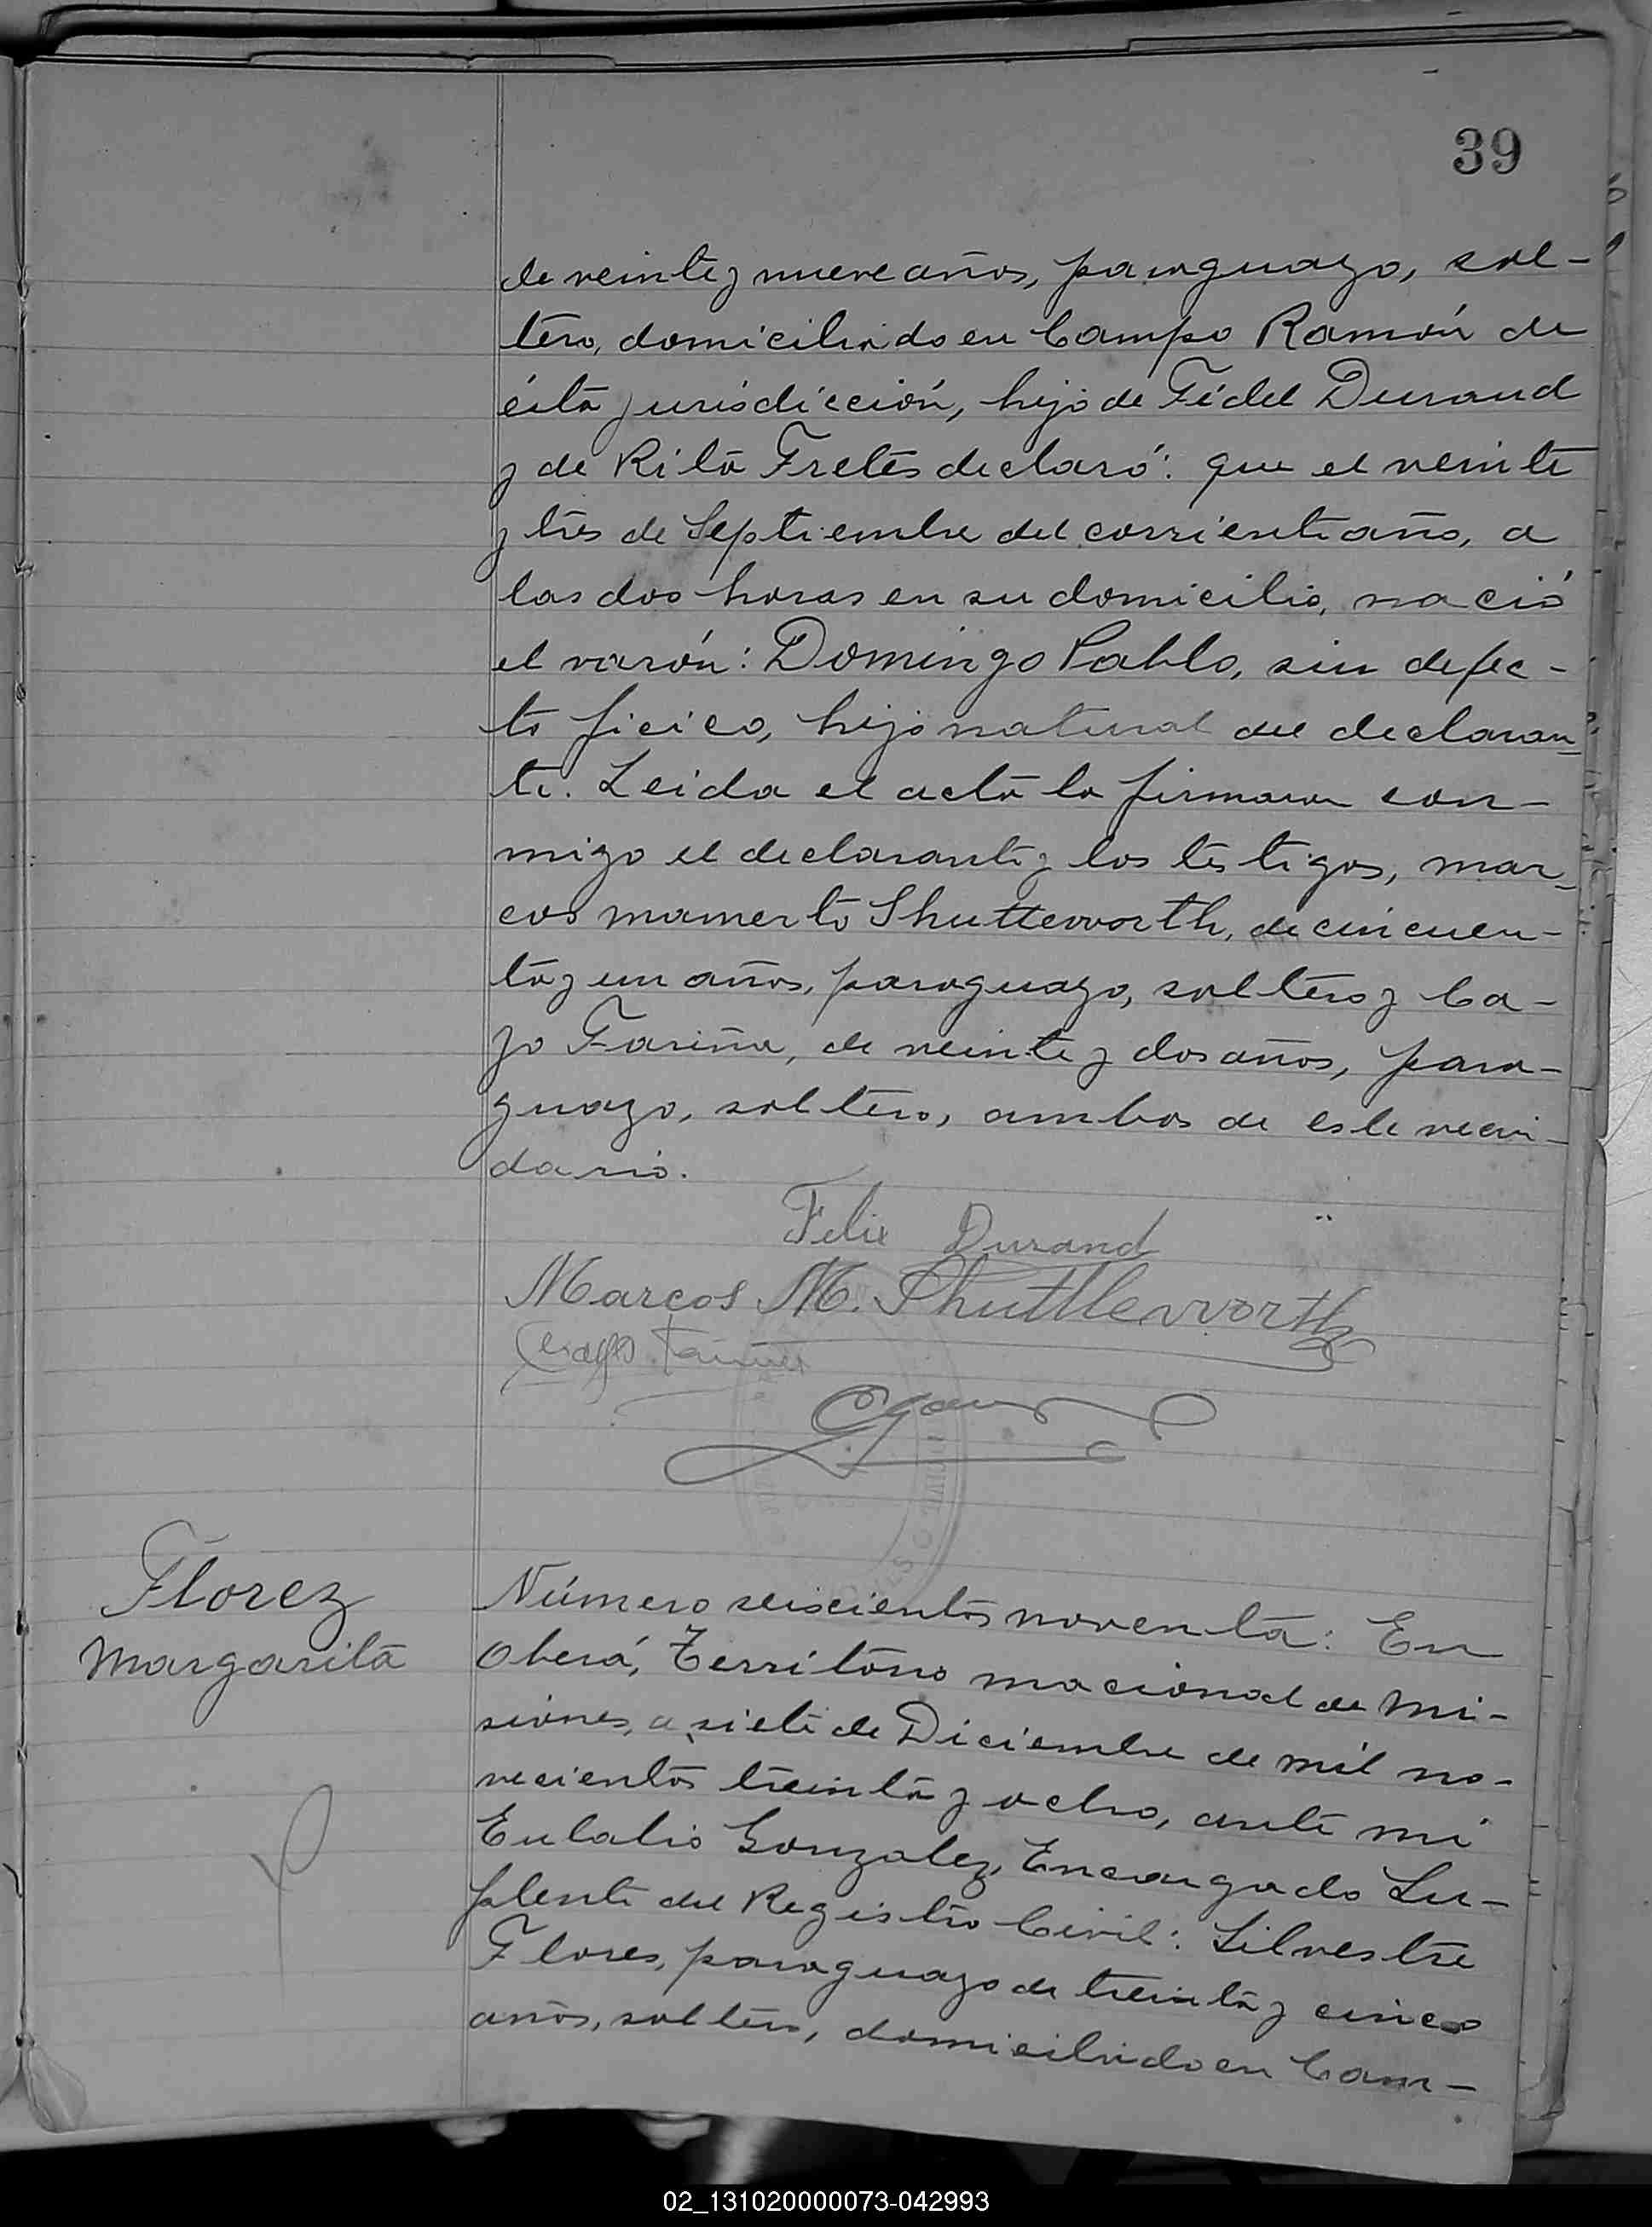 39
de veinte y nueve años, paraguayo, sol-
tero, domiciliado en Campo Ramón de
ésta jurisdicción, hijo de Fidel Durand
y de Rita Fretes declaró: que el veinte
y tres de Septiembre del corriente año, a
las dos horas en su domicilio, nació
el varón: Domingo Pablo, sin defec-
to ficico, hijo natural del declaran-
te. Leida el acta la firmaron con-
migo el declarante y los testigos, mar-
cos mamerto Shutteworth, de cincuen-
ta y un años, paraguayo, soltero y Ca-
yo Fariña, de veinte y dos años, para-
guayo, soltero, ambos de este vecin-
dario.
Felix Durand
Marcos M. Shuttleworth
Florez
Margarita
Número seiscientos noventa: En
Oberá, Territorio nacional de Mi-
siones, a siete de Diciembre de mil no-
vecientos treinta y ocho, ante mi
Eulalio Gonzalez, Encargado Su-
plente del Registro Civil: Silvestre
Flores, paraguayo de treinta y cinco
años, soltero, domiciliado en Cam-
02_131020000073-042993